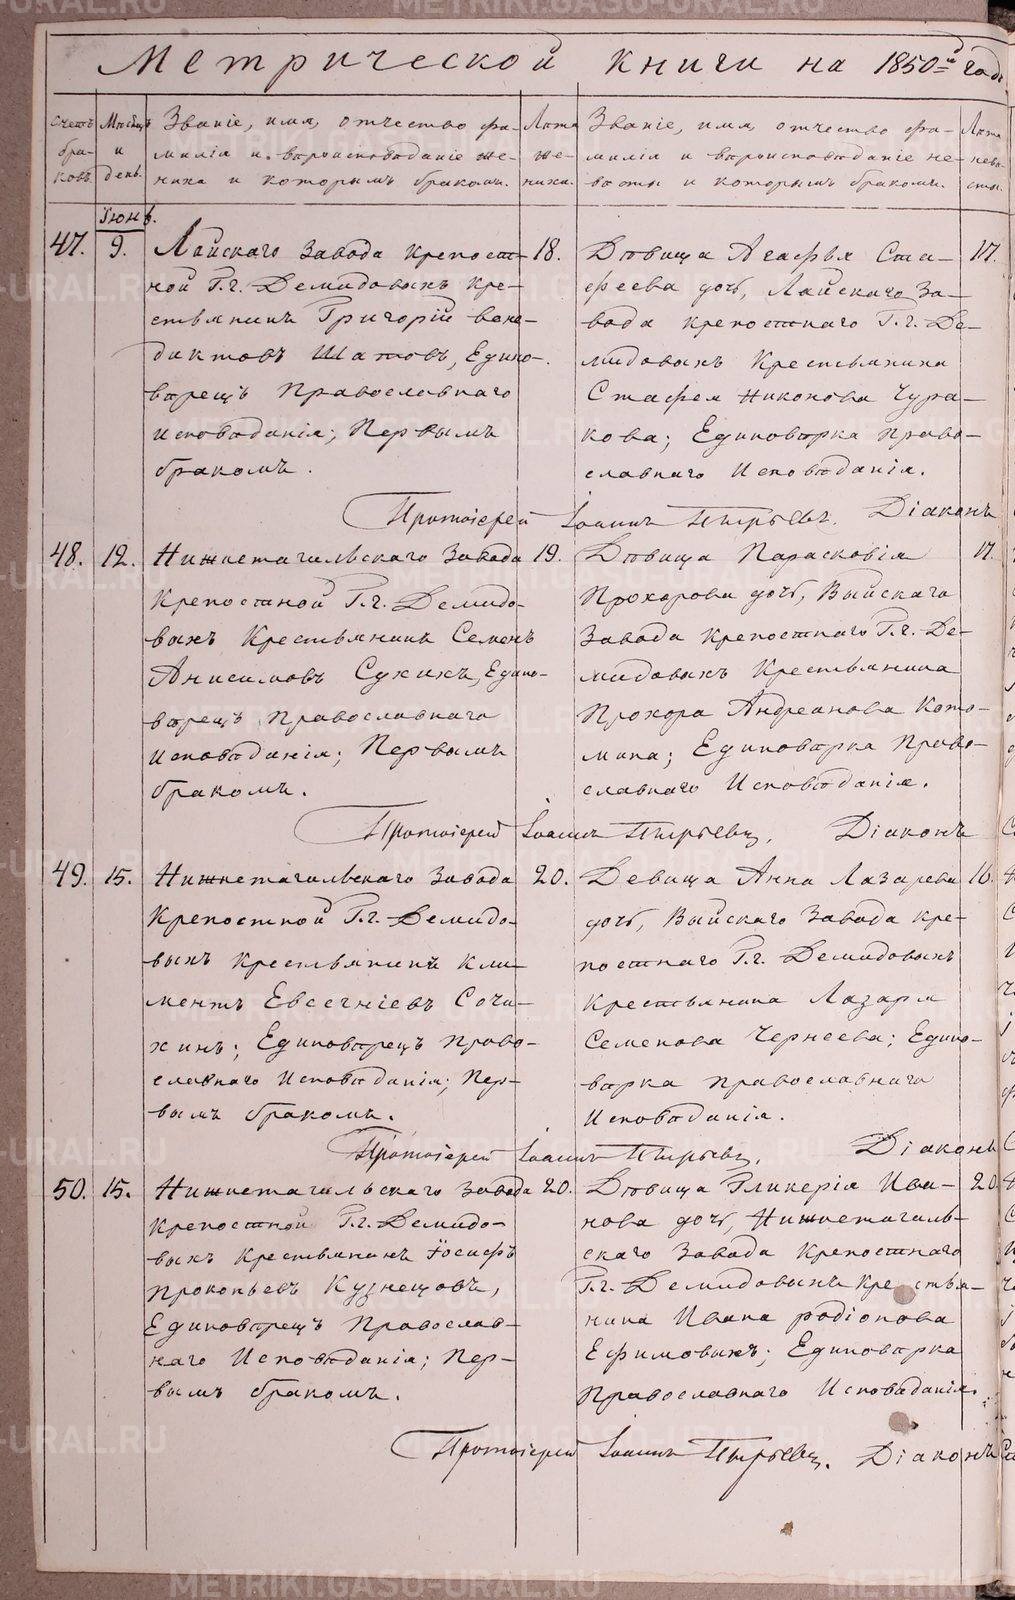 Метрической книги на 1850й годъ
Счетъ бра-ковъ.
Мѣсяцъ и день.
Званіе, имя, отчество фа-
милія и вѣроисповѣданіе же-
ниха и которымъ бракомъ.
Лѣта же-ниха.
Званіе, имя, отчество фа-
милія и вѣроисповѣданіе не-
вѣсты и которымъ бракомъ.
Лѣта невѣ-сты.
Іюнь.
47.
9.
Лайскаго Завода крепост-
ной Г.г. Демидовыхъ Кре-
стьянинъ Григорій Вене-
диктовъ Шатовъ, Едино-
вѣрецъ Православнаго
Исповѣданія; Первымъ
бракомъ.
18.
Дѣвица Агафья Ста-
феева дочь, Лайскаго За-
вода крепостнаго Г.г. Де-
мидовыхъ Крестьянина
Стафея Никонова Чура-
кова; Единовѣрка право-
славнаго Исповѣданія.
17.
Протоіерей Іоаннъ Пырьевъ. Діаконъ
48.
12.
Нижнетагильскаго Завода
Крепостной Г.г. Демидо-
выхъ Крестьянинъ Семенъ
Анисимовъ Сухихъ, Едино-
вѣрецъ Православнаго
Исповѣданія; Первымъ
бракомъ.
19.
Дѣвица Парасковія
Прохорова дочь, Выйскаго
Завода крепостнаго Г.г. Де-
мидовыхъ Крестьянина
Прохора Андреанова Кото-
мина; Единовѣрка Право-
славнаго Исповѣданія.
17.
Протоіерей Іоаннъ Пырьевъ. Діаконъ
49.
15.
Нижнетагильскаго Завода
Крепостной Г.г. Демидо-
выхъ крестьянинъ Кли-
ментъ Евсегніевъ Сочи-
хинъ; Единовѣрецъ Право-
славнаго Исповѣданія; Пер-
вымъ бракомъ.
20.
Девица Анна Лазарева
дочь, Выйскаго Завода кре-
постнаго Г.г. Демидовыхъ
Крестьянина Лазаря
Семенова Чернеева; Едино-
вѣрка православнаго
Исповѣданія.
16.
Протоіерей Іоаннъ Пырьевъ. Діаконъ
50.
15.
Нижнетагильскаго Завода
Крепостной Г.г. Демидо-
выхъ Крестьянинъ Іосифъ
Прокопьевъ Кузнецовъ,
Единовѣрецъ Православ-
наго Исповѣданія; Пер-
вымъ бракомъ.
20.
Дѣвица Гликерія Ива-
нова дочь, Нижнетагиль-
скаго Завода Крепостнаго
Г.г. Демидовыхъ Крестья-
нина Ивана родіонова
Ефимовыхъ; Единовѣрка
Православнаго Исповѣданія.
20.
Протоіерей Іоаннъ Пырьевъ. Діаконъ
METRIKI.GASO-URAL.RU